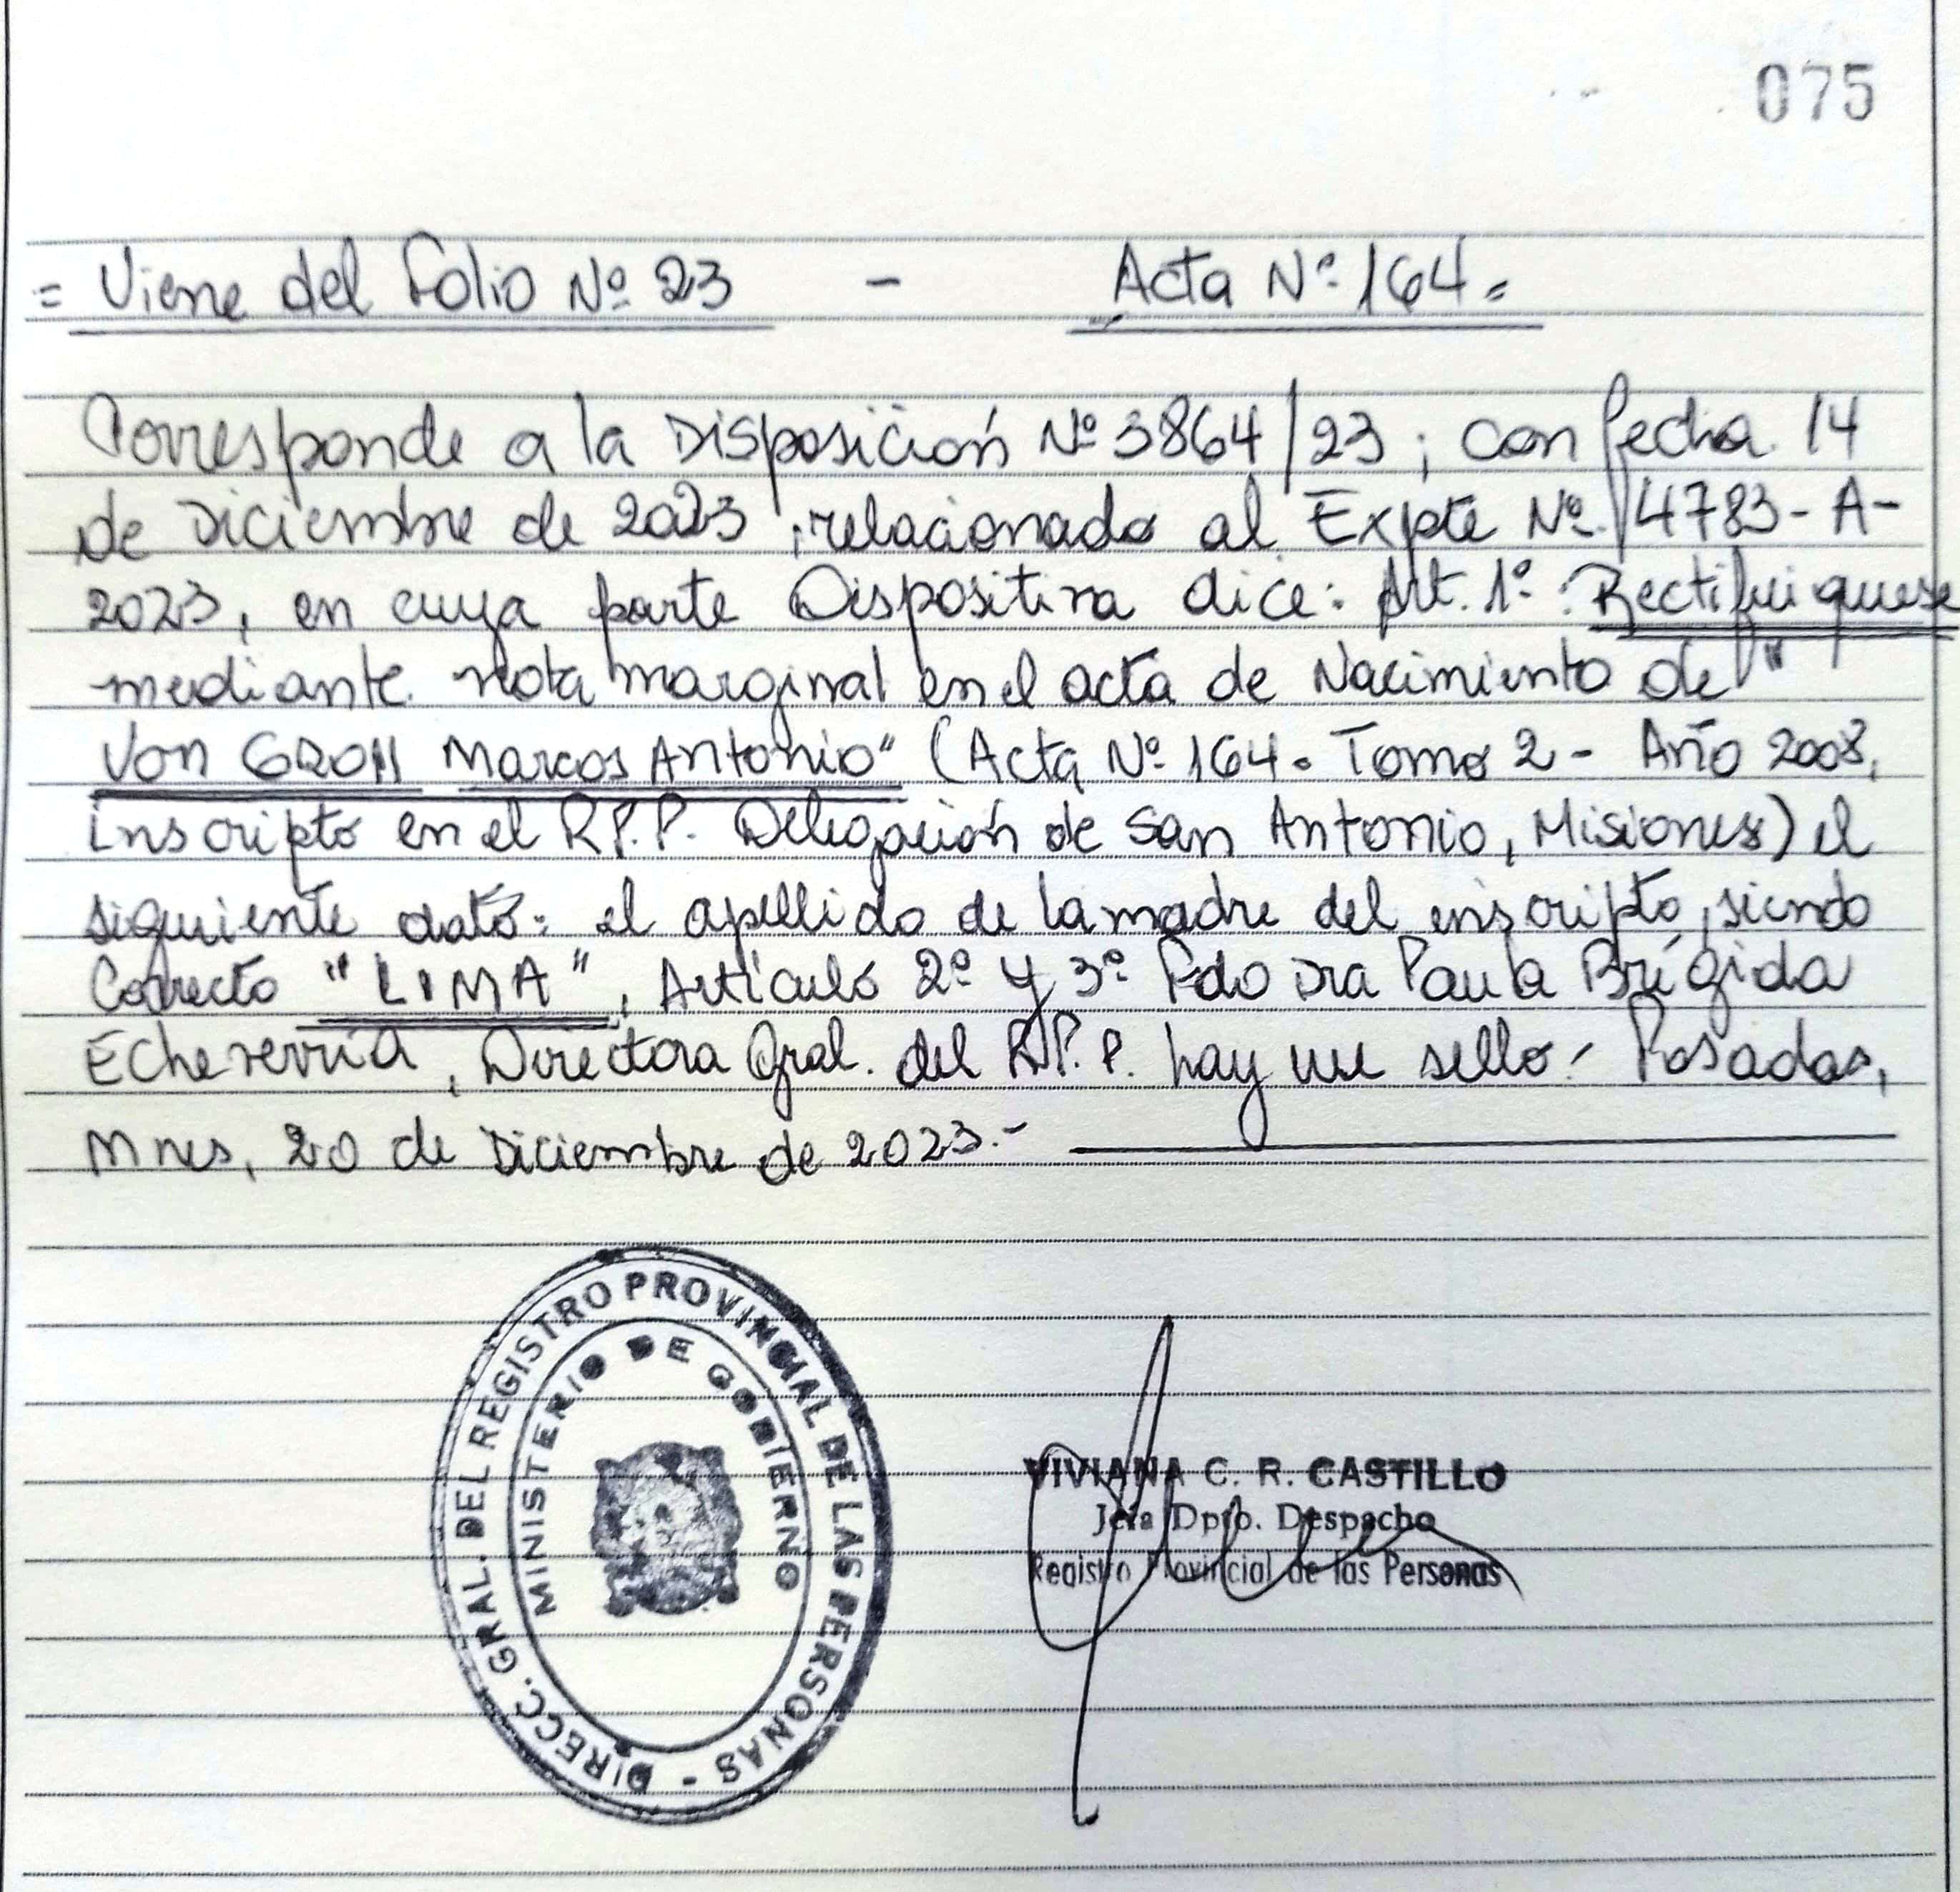 075
= Viene del Folio Nº 23 - Acta Nº 164 =
Corresponde a la Disposición Nº 3864/23; con fecha 14
de Diciembre de 2023, relacionado al Expte Nº 14783-A-
2023, en cuya parte Dispositiva dice: Art. 1º: Rectifiquese
mediante nota marginal en el acta de Nacimiento de "
Von GROH Marcos Antonio" (Acta Nº 164. Tomo 2 - Año 2008,
inscripto en el R.P.P. Delegación de San Antonio, Misiones) el
siguiente dato: el apellido de la madre del inscripto, siendo
Correcto "LIMA", Artículo 2º y 3º Fdo Dra Paula Brígida
Echeverría, Directora Gral. del R.P.P. hay un sello.- Posadas,
Mnes, 20 de Diciembre de 2023.-
DIRECC. GRAL. DEL REGISTRO PROVINCIAL DE LAS PERSONAS -
MINISTERIO DE GOBIERNO
VIVIANA C. R. CASTILLO
Jefa Dpto. Despacho
Registro Provincial de las Personas